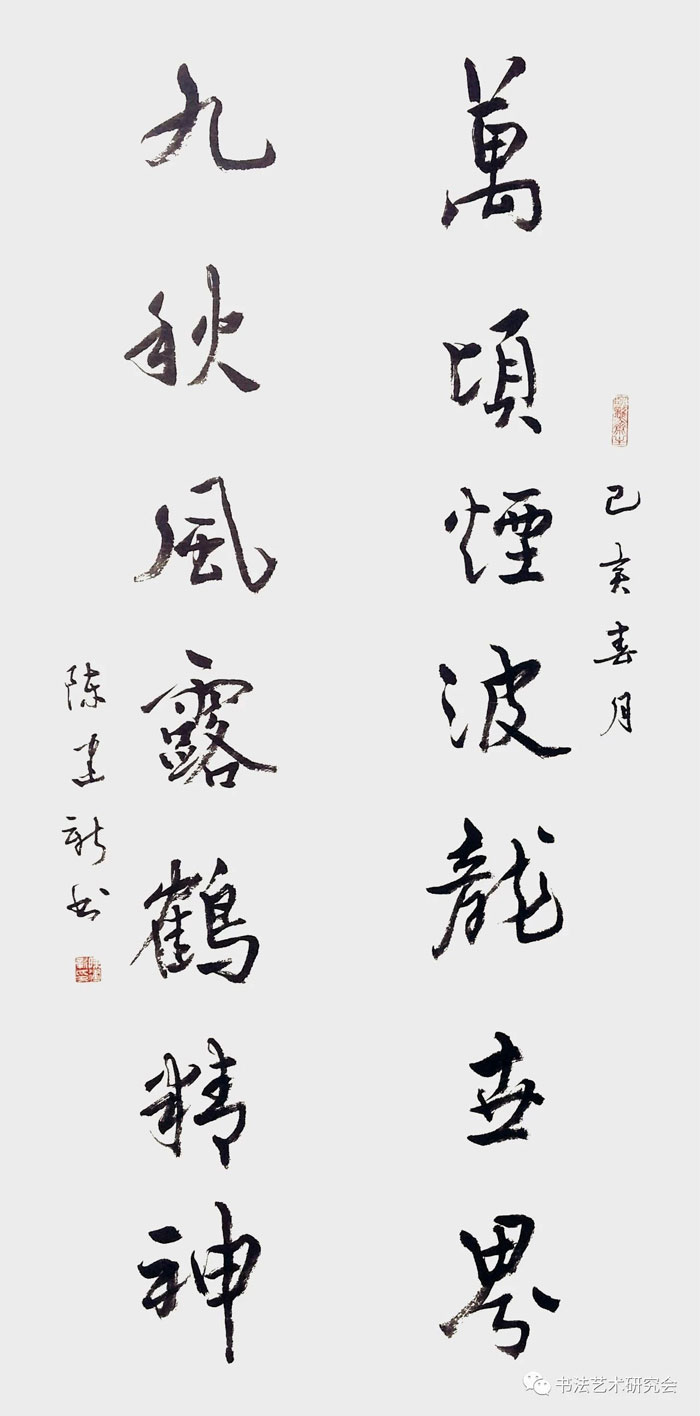 己亥春月
萬頃煙波龍世界
九秋風露鶴精神
陈建新书
书法艺术研究会